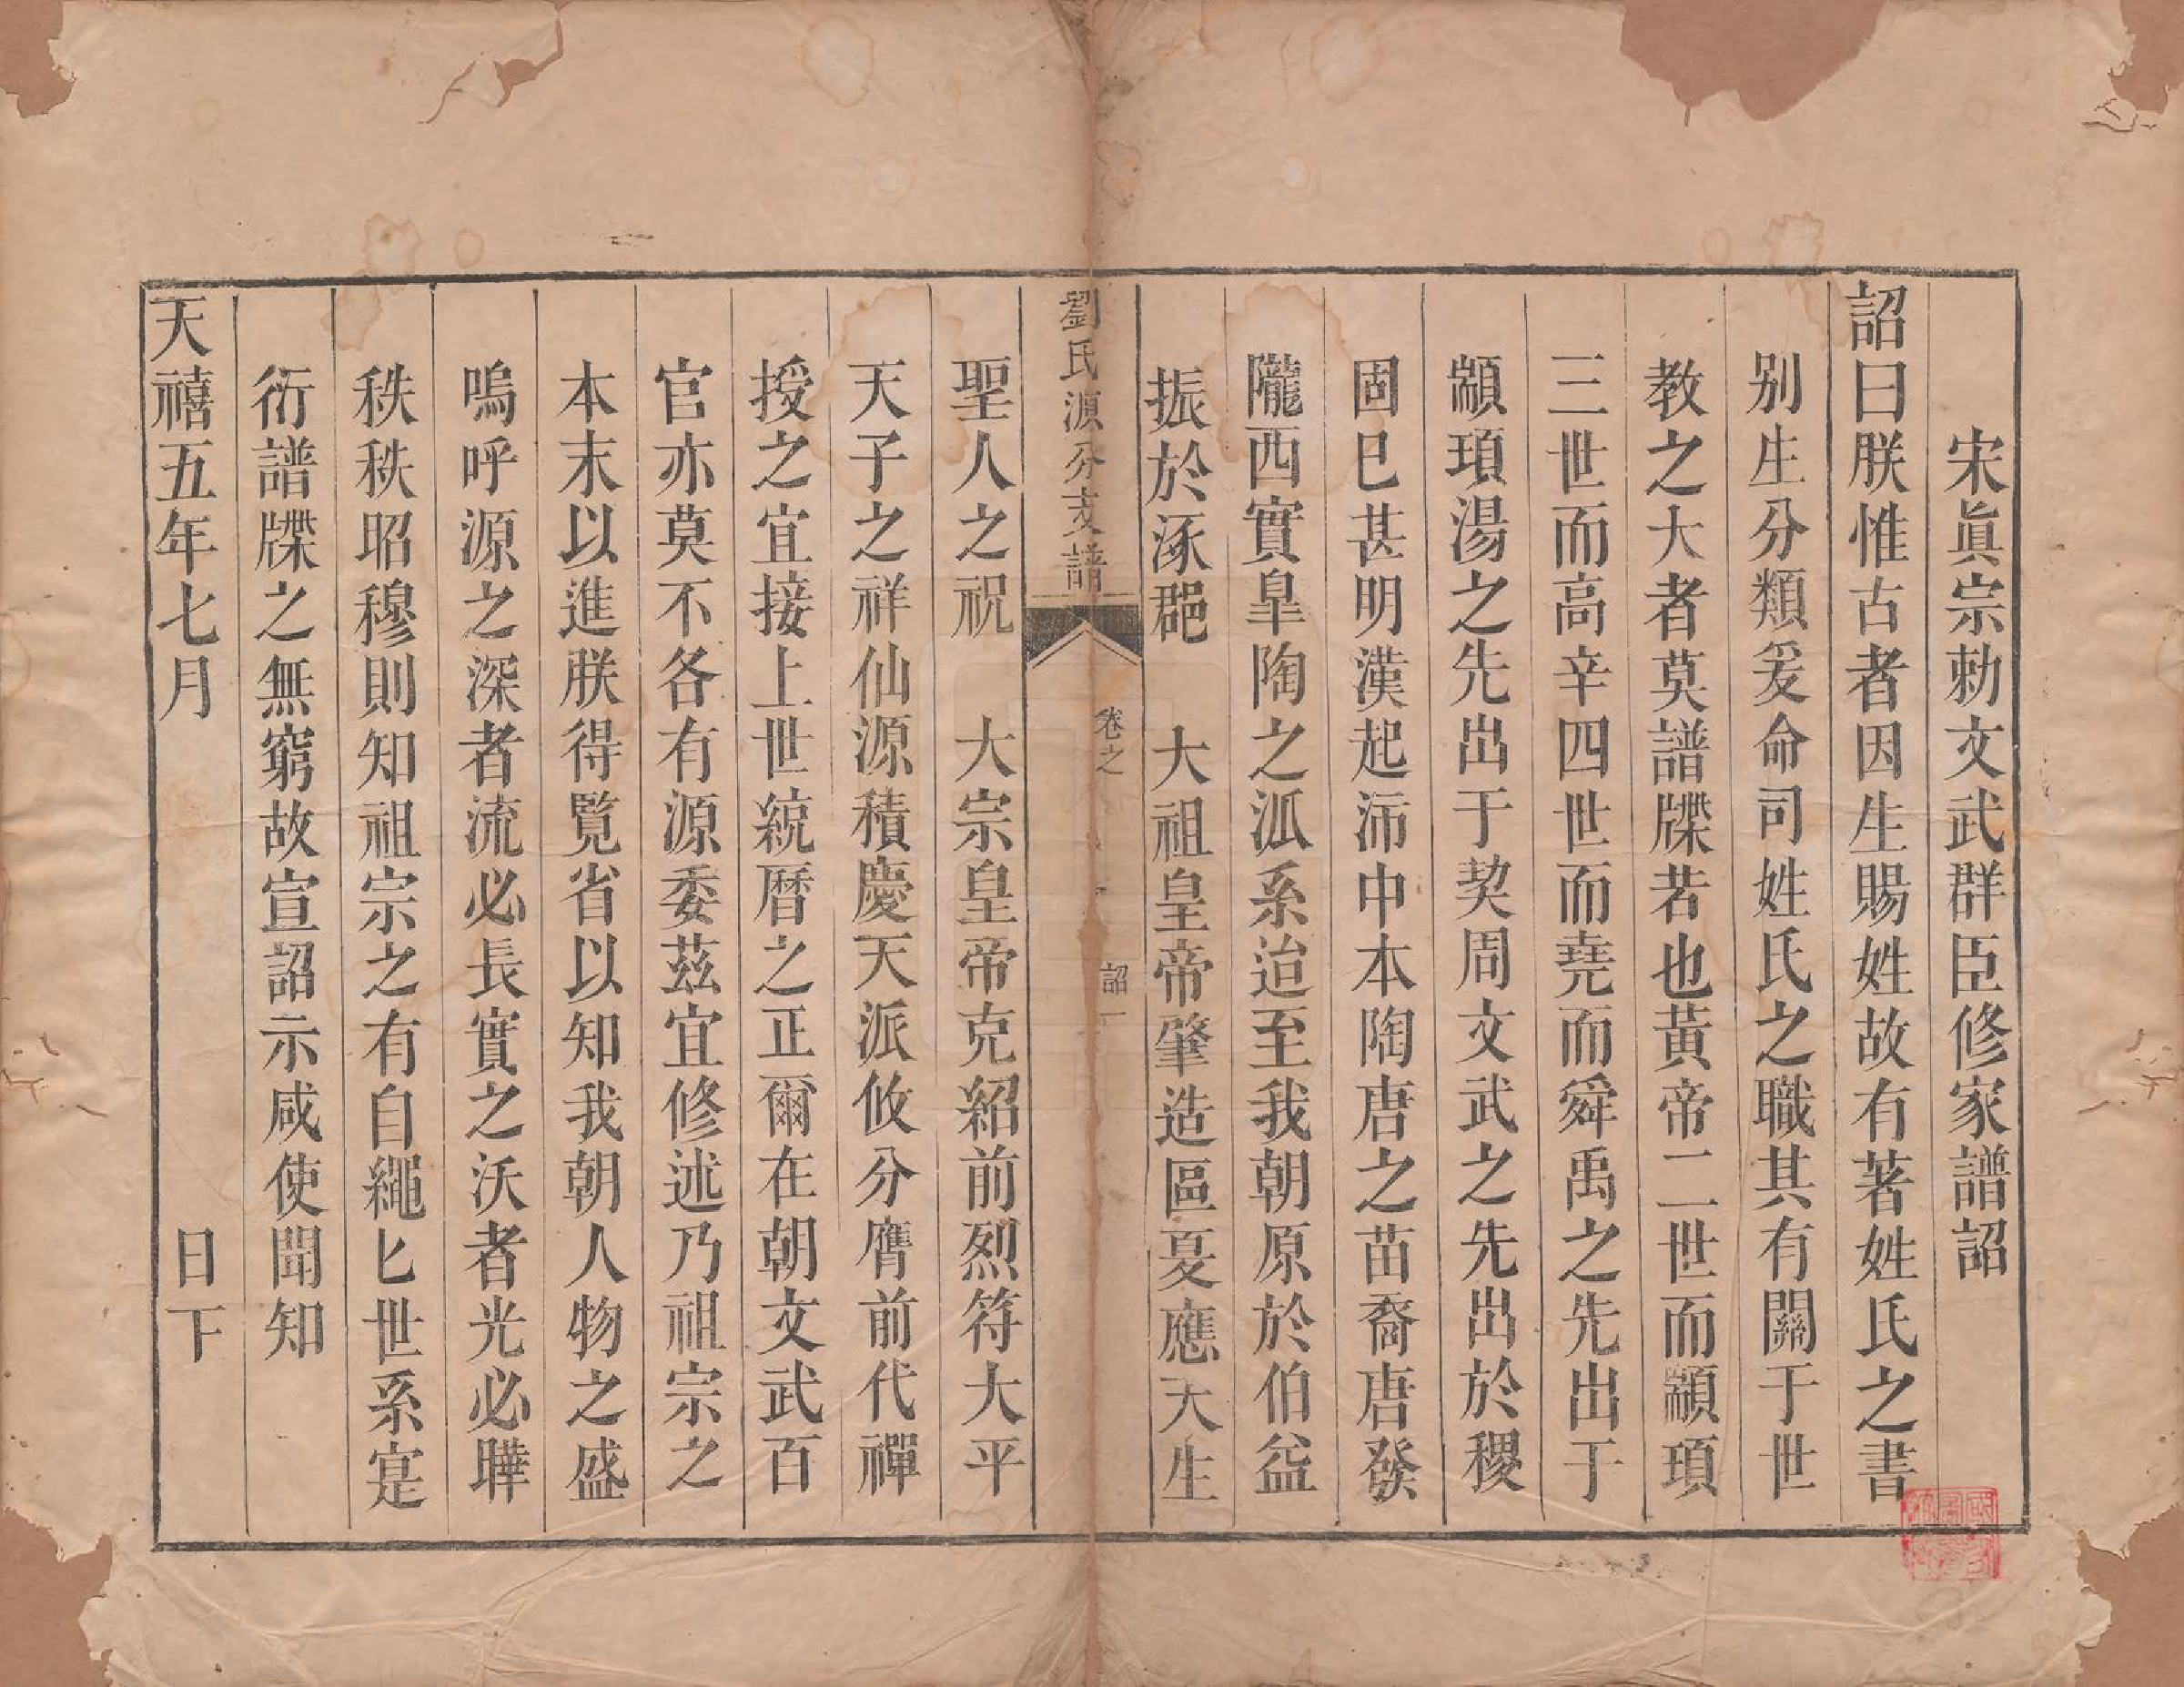 宋眞宗勅文武群臣修家譜詔
詔曰朕惟古者因生賜姓故有著姓氏之書
别生分類爰命司姓氏之職其有關于世
教之大者莫譜牒若也黃帝二世而顓頊
三世而高辛四世而堯而舜禹之先出于
顓頊湯之先出于契周文武之先出於稷
固巳甚明漢起沛中本陶唐之苗裔唐發
隴西實臯陶之泒系迨至我朝原於伯益
振於涿郡　大祖皇帝肇造區夏應天生
劉氏源分支譜　卷之　詔　一
聖人之祝　大宗皇帝克紹前烈符大平
天子之祥仙源積慶天派攸分膺前代禪
授之宜接上世統曆之正爾在朝文武百
官亦莫不各有源委茲宜修述乃祖宗之
本末以進朕得覽省以知我朝人物之盛
嗚呼源之深者流必長實之沃者光必曄
秩秩昭穆則知祖宗之有自繩匕世系寔
衍譜牒之無窮故宣詔示咸使聞知
天禧五年七月　日下